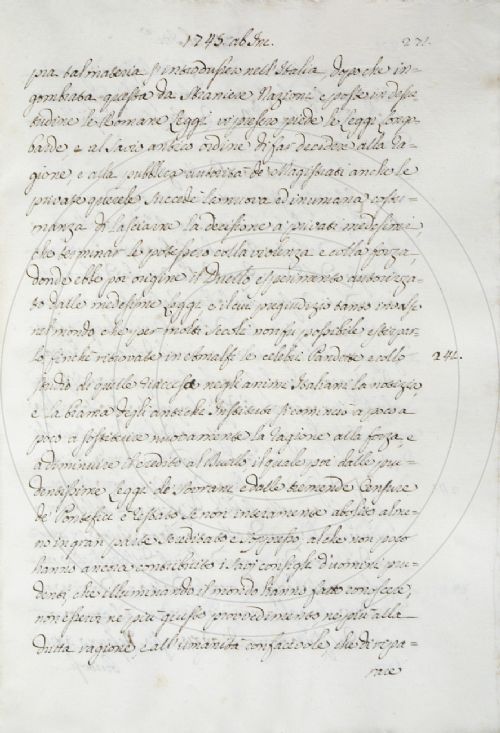 1745 ab Inc. 271.
pra tal materia s'introdusse nell'Italia, dopo che in=
gombrata questa da straniere Nazioni e poste in desue
tudine le Romane Leggi vi presero piede le Leggi Longo
barde, e al savio antico ordine di far decidere alla Ra=
gione e alla pubblica autorità de Magistrati anche le
private querele succede la nuova ed inumana costu=
manza di lasciarne la decisione a privati medesimi,
che terminar le potessero colla violenza e colla forza,
donde ebbe poi origine il Duello esperimento autorizza=
to dalle medesime Leggi e il cui pregiudizio tanto invalse
nel mondo che per molti secoli non fù possibile estirpar=
lo finchè ritrovate in Amalfi le celebri Pandette e collo 242.
studio di quelle riaccesa negli animi Italiani la notizia,
e la brama degli antichi Instituti si cominciò a poco a
poco a sostituire nuovamente la ragione alla forza, e
a diminuire il credito al Duello il quale poi dalle pru=
dentissime Leggi de Sovrani e dalle tremende Censure
de Pontefici è restato se non interamente abolito alme=
no in gran parte screditato e soppresso, al che non poco
hanno ancora contribuito i savi consigli d'uomini pru=
denti, che illuminando il mondo hanno fatto conoscere,
non esservi nè più giusto provvedimento nè più alla
dritta ragione, e all'umanità confacevole, che di ripa=
rare